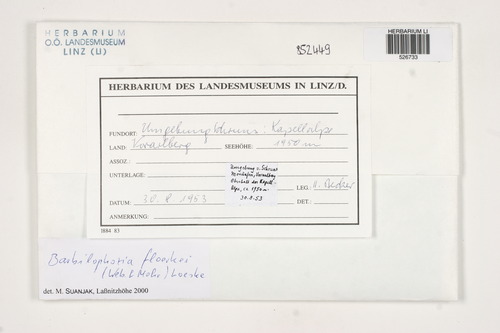 HERBARIUM
O.Ö. LANDESMUSEUM
LINZ (LI)
HERBARIUM LI
526733
HERBARIUM DES LANDESMUSEUMS IN LINZ/D.
FUNDORT: Umgebung Schruns: Kapellalpe
LAND: Vorarlberg SEEHÖHE: 1950 m
ASSOZ.:
UNTERLAGE:
Umgebung v. Schruns
Montafon, Vorarlberg
Oberhalb der Kapell-
Alpe, ca. 1950 m
30.8.53
LEG.: H. Becker
DATUM: 30. 8. 1953 DET.:
ANMERKUNG:
I884 83
Barbilophozia floerkei
(Web. & Mohr) Loeske
det. M. SUANJAK, Laßnitzhöhe 2000